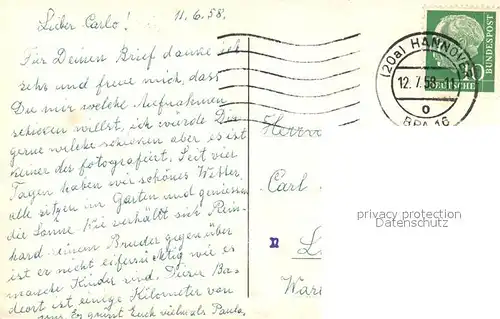 Lieber Carlo! 11.6.58.
Für Deinen Brief danke ich
sehr und freue mich, dass
Du mir welche Aufnahmen
schicken willst, ich würde Dir
gerne welche schicken aber es ist
keiner der fotografiert. Seit vier
Tagen haben wir schönes Wetter,
alle sitzen im Garten und geniessen
die Sonne. Wie verhällt sich Rein-
hard seinem Bruder gegenüber
ist er nicht eifersüchtig wie es
manche Kinder sind. Dieser Ba-
deort ist einige Kilometer von
uns. Es grüßt Euch vielmals Paula,
(20a) HANNOVER
12.7.58.-11
o
BPA 16
DEUTSCHE BUNDESPOST
Herrn
Carl
n
privacy protection
Datenschutz